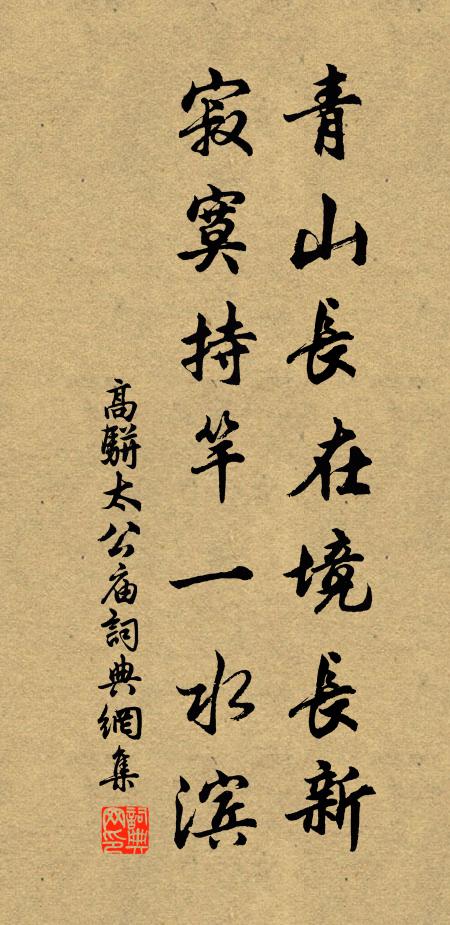 青山長在境長新
寂寞持竿一水滨
高駢太公庙詞典網集
詞典网印